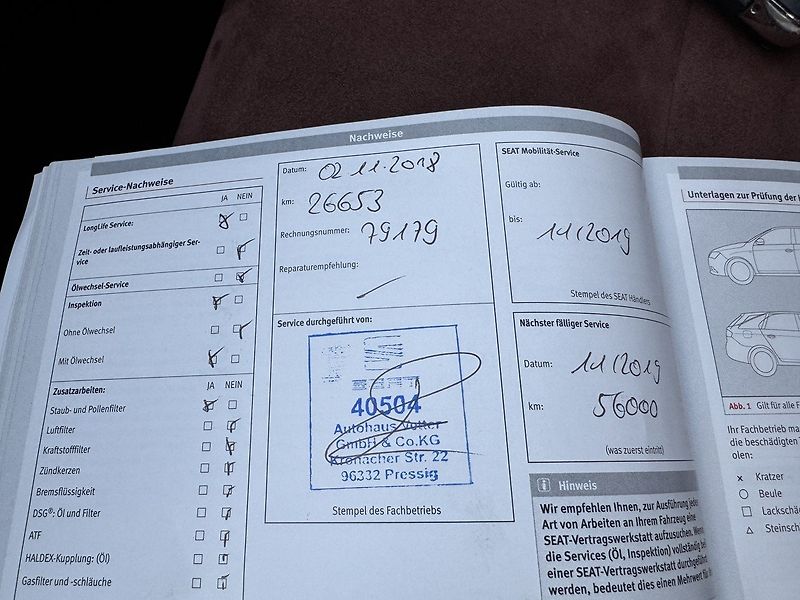 Nachweise
Service-Nachweise
JA NEIN
LongLife Service:
Zeit- oder laufleistungsabhängiger Ser-
vice
Ölwechsel-Service
Inspektion
Ohne Ölwechsel
Mit Ölwechsel
Zusatzarbeiten:
JA NEIN
Staub- und Pollenfilter
Luftfilter
Kraftstofffilter
Zündkerzen
Bremsflüssigkeit
DSG®: Öl und Filter
ATF
HALDEX-Kupplung: (Öl)
Gasfilter und -schläuche
Datum: 02 11.2018
km: 26653
Rechnungsnummer: 79179
Reparaturempfehlung:
Service durchgeführt von:
SEAT
40504
Autohaus Vetter
GmbH & Co.KG
Kronacher Str. 22
96332 Pressig
Stempel des Fachbetriebs
SEAT Mobilität-Service
Gültig ab:
bis: 11/2019
Stempel des SEAT Händlers
Nächster fälliger Service
Datum: 11/2019
km: 56000
(was zuerst eintritt)
i Hinweis
Wir empfehlen Ihnen, zur Ausführung jeder
Art von Arbeiten an Ihrem Fahrzeug eine
SEAT-Vertragswerkstatt aufzusuchen. Wenn
die Services (Öl, Inspektion) vollständig bei
einer SEAT-Vertragswerkstatt durchgeführt
werden, bedeutet dies einen Mehrwert für
Unterlagen zur Prüfung der
Abb. 1 Gilt für alle
Ihr Fachbetrieb
die beschädigten
olen:
x Kratzer
○ Beule
□ Lackschä
△ Steinsch